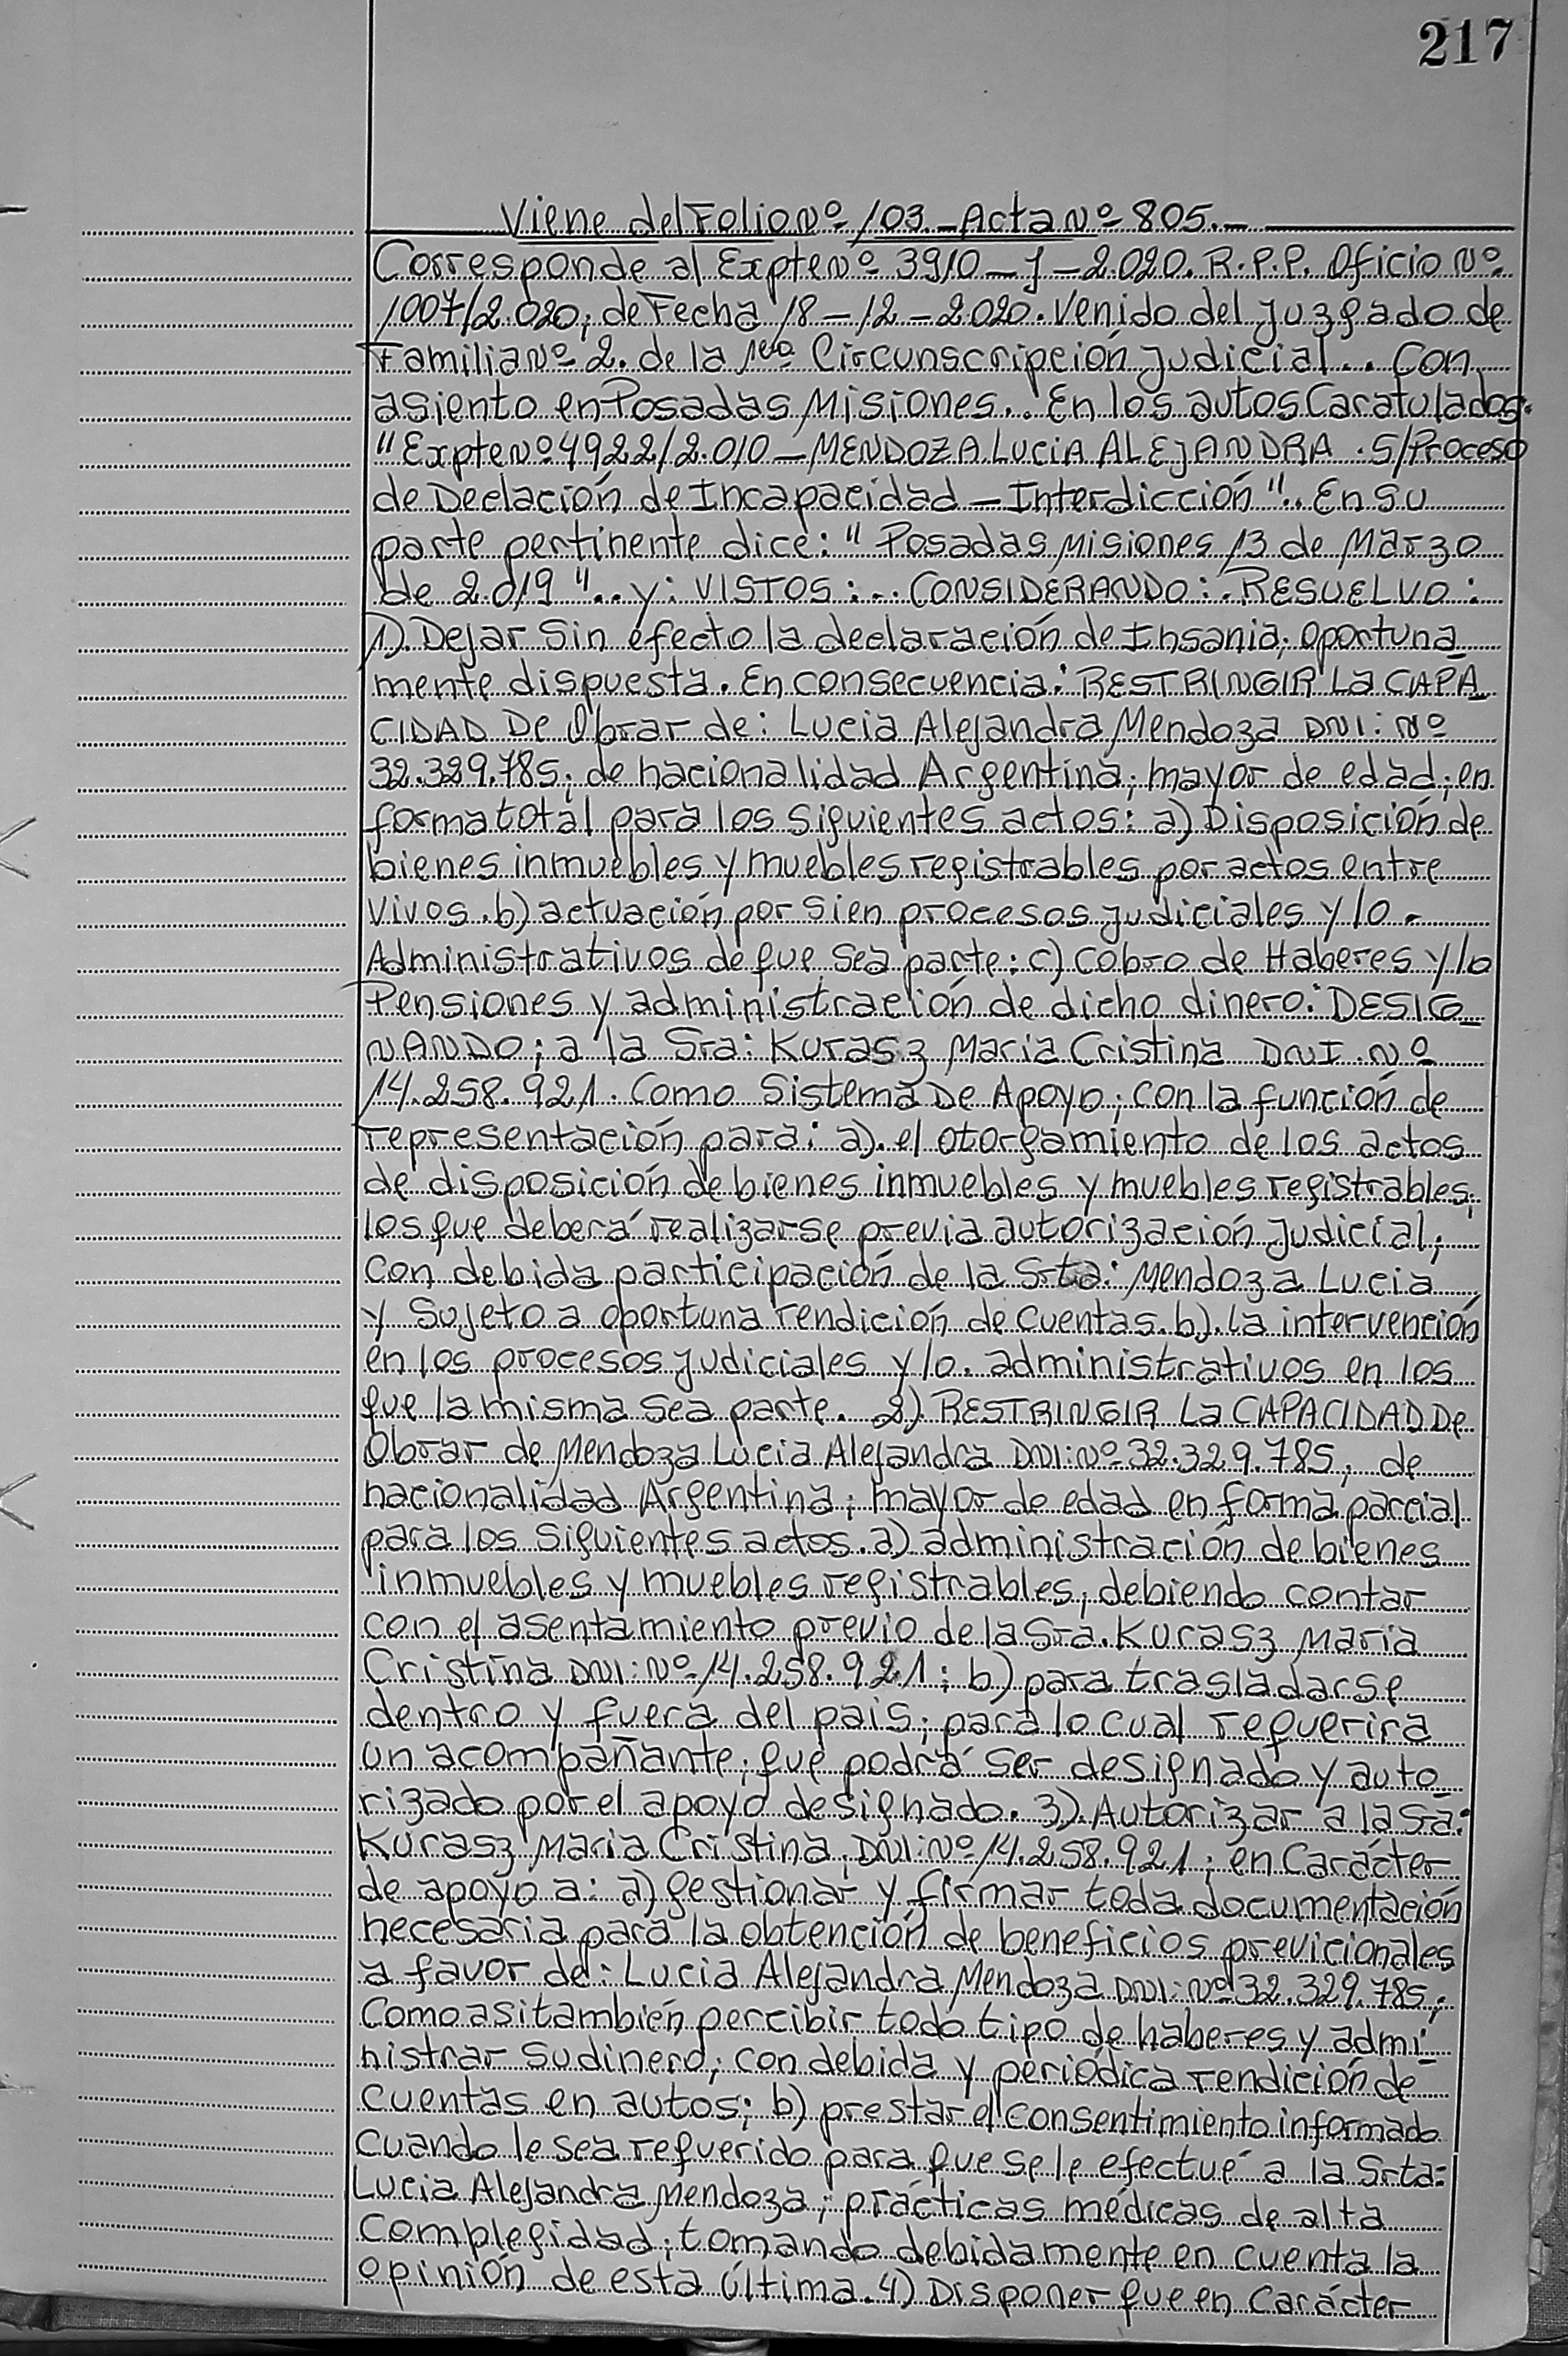 217
Viene del Folio Nº 103.- Acta Nº 805.-
Corresponde al Expte Nº 3910-J-2.020. R.P.P. Oficio Nº
1007/2.020; de Fecha 18-12-2.020. Venido del Juzgado de
Familia Nº 2. de la 1era Circunscripción Judicial... Con
asiento en Posadas Misiones... En los autos Caratulados.
"Expte Nº 4922/2.010 - MENDOZA LUCIA ALEJANDRA. S/Proceso
de Declación de Incapacidad - Interdicción"... En su
parte pertinente dice: "Posadas Misiones 13 de Marzo
de 2.019"... y: VISTOS:... CONSIDERANDO:. RESUELVO:
1). Dejar Sin efecto la declaración de Insania; oportuna_
mente dispuesta. En consecuencia: RESTRINGIR La CAPA_
CIDAD De Obrar de: Lucia Alejandra Mendoza DNI: Nº
32.329.785; de nacionalidad Argentina; mayor de edad; en
forma total para los siguientes actos: a) Disposición de
bienes inmuebles y muebles registrables por actos entre
vivos. b) actuación por si en procesos judiciales y/o -
Administrativos de que sea parte: c) cobro de Haberes y/o
Pensiones y administración de dicho dinero: DESIG_
NANDO; a la Sra: Kurasz Maria Cristina DNI. Nº
14.258.921. Como Sistema De Apoyo; con la función de
representación para: a). el otorgamiento de los actos
de disposición de bienes inmuebles y muebles registrables;
los que deberá realizarse previa autorización Judicial;
Con debida participación de la Srta: Mendoza Lucia
y Sujeto a oportuna rendición de Cuentas. b). la intervención
en los procesos judiciales y/o. administrativos en los
que la misma sea parte. 2) RESTRINGIR La CAPACIDAD De
Obrar de Mendoza Lucia Alejandra DNI: Nº 32.329.785; de
nacionalidad Argentina; mayor de edad en forma parcial
para los siguientes actos. a) administración de bienes
inmuebles y muebles registrables; debiendo contar
con el asentamiento previo de la Sra. Kurasz Maria
Cristina DNI: Nº 14.258.921; b) para trasladarse
dentro y fuera del pais; para lo cual requerira
un acompañante; que podrá ser designado y auto_
rizado por el apoyo designado. 3). Autorizar a la Sa:
Kurasz Maria Cristina; DNI: Nº 14.258.921; en Carácter
de apoyo a: a) gestionar y firmar toda documentación
necesaria para la obtención de beneficios previcionales
a favor de: Lucia Alejandra Mendoza DNI: Nº 32.329.785;
Como asi también percibir todo tipo de haberes y admi_
nistrar su dinero; con debida y periódica rendición de
Cuentas en autos; b) prestar el consentimiento informado
Cuando le sea requerido para que se le efectué a la Srta:
Lucia Alejandra Mendoza; prácticas médicas de alta
Complegidad; tomando debidamente en cuenta la
opinión de esta última. 4) Disponer que en Carácter